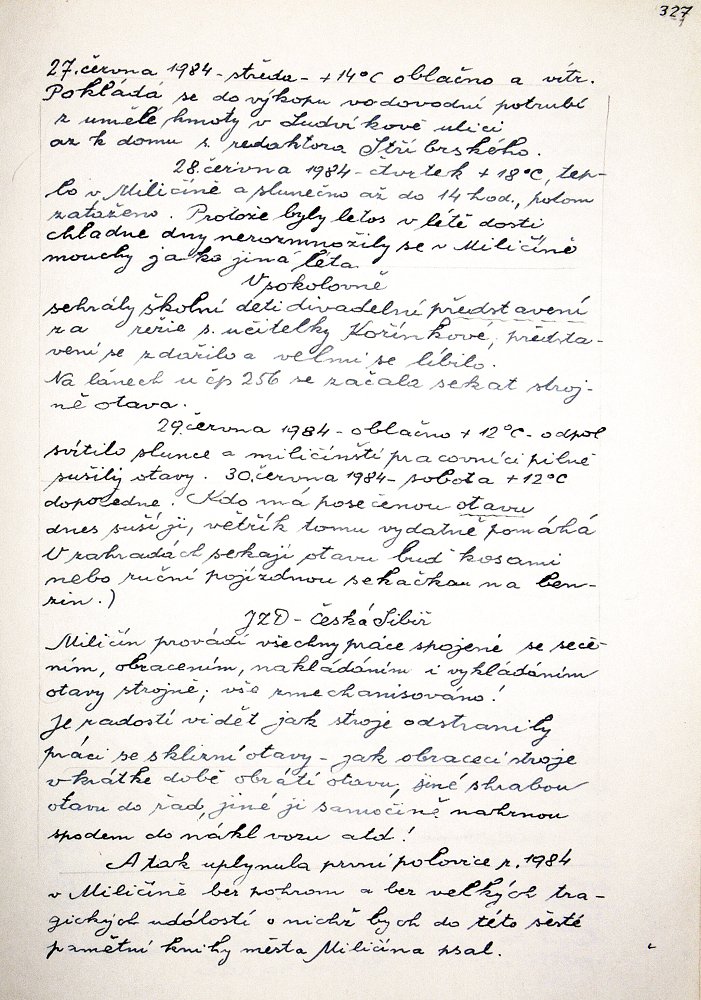 327
27. června 1984 - středa - +14°C oblačno a vítr.
Pokládá se do výkopu vodovodní potrubí
z umělé hmoty v Ludvíkově ulici
až k domu s. redaktora Stříbrského.
28. června 1984 - čtvrtek +18°C, tep-
lo v Miličíně a slunečno až do 14 hod., potom
zataženo. Protože byly letos v létě dosti
chladné dny nerozmnožily se v Miličíně
mouchy jako jiná léta.
V sokolovně
sehrály školní děti divadelní představení
za režie s. učitelky Kořínkové, předsta-
vení se zdařilo a velmi se líbilo.
Na lánech u čp 256 se začala sekat stroj-
ně otava.
29. června 1984 - oblačno +12°C - odpol
svítilo slunce a miličínští pracovníci pilně
sušily otavy. 30. června 1984 - sobota +12°C
dopoledne. Kdo má posečenou otavu
dnes suší ji, větřík tomu vydatně pomáhá
V zahradách sekají otavu buď kosami
nebo ruční pojízdnou sekačkou na ben-
zin.)
JZD - Česká Sibiř
Miličín provádí všechny práce spojené se seče-
ním, obracením, nakládáním i vykládáním
otavy strojně; vše zmechanisováno!
Je radostí vidět jak stroje odstranily
práci se sklizní otavy - jak obraceci stroje
v krátké době obrátí otavu, jiné shrabou
otavu do řad, jiné ji samočině nahrnou
spodem do nákl vozu atd!
A tak uplynula první polovice r. 1984
v Miličíně bez pohrom a bez velkých tra-
gických událostí o nichž bych do této šesté
pamětní knihy města Miličína psal.